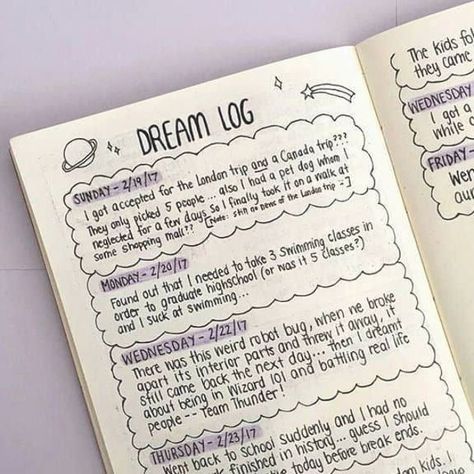 DREAM LOG
SUNDAY - 2/19/17
I got accepted for the London trip and a Canada trip???
They only picked 5 people... also I had a pet dog when I
neglected for a few days so I finally took it on a walk at
some shopping mall??
MONDAY - 2/20/17
Found out that I needed to take 3 swimming classes in
order to graduate highschool (or was it 5 classes?)
and I suck at swimming...
WEDNESDAY - 2/22/17
There was this weird robot bug, when we broke
apart its interior parts and threw it away, it
still came back the next day... then I dreamt
about being in Wizard 101 and battling real life
people -- Team Thunder!
THURSDAY - 2/23/17
Went back to school suddenly and I had no
finished in history... guess I should
today before break ends.
The kids
they came
WEDNESDAY
I got a
while
FRIDAY -
Wen
our